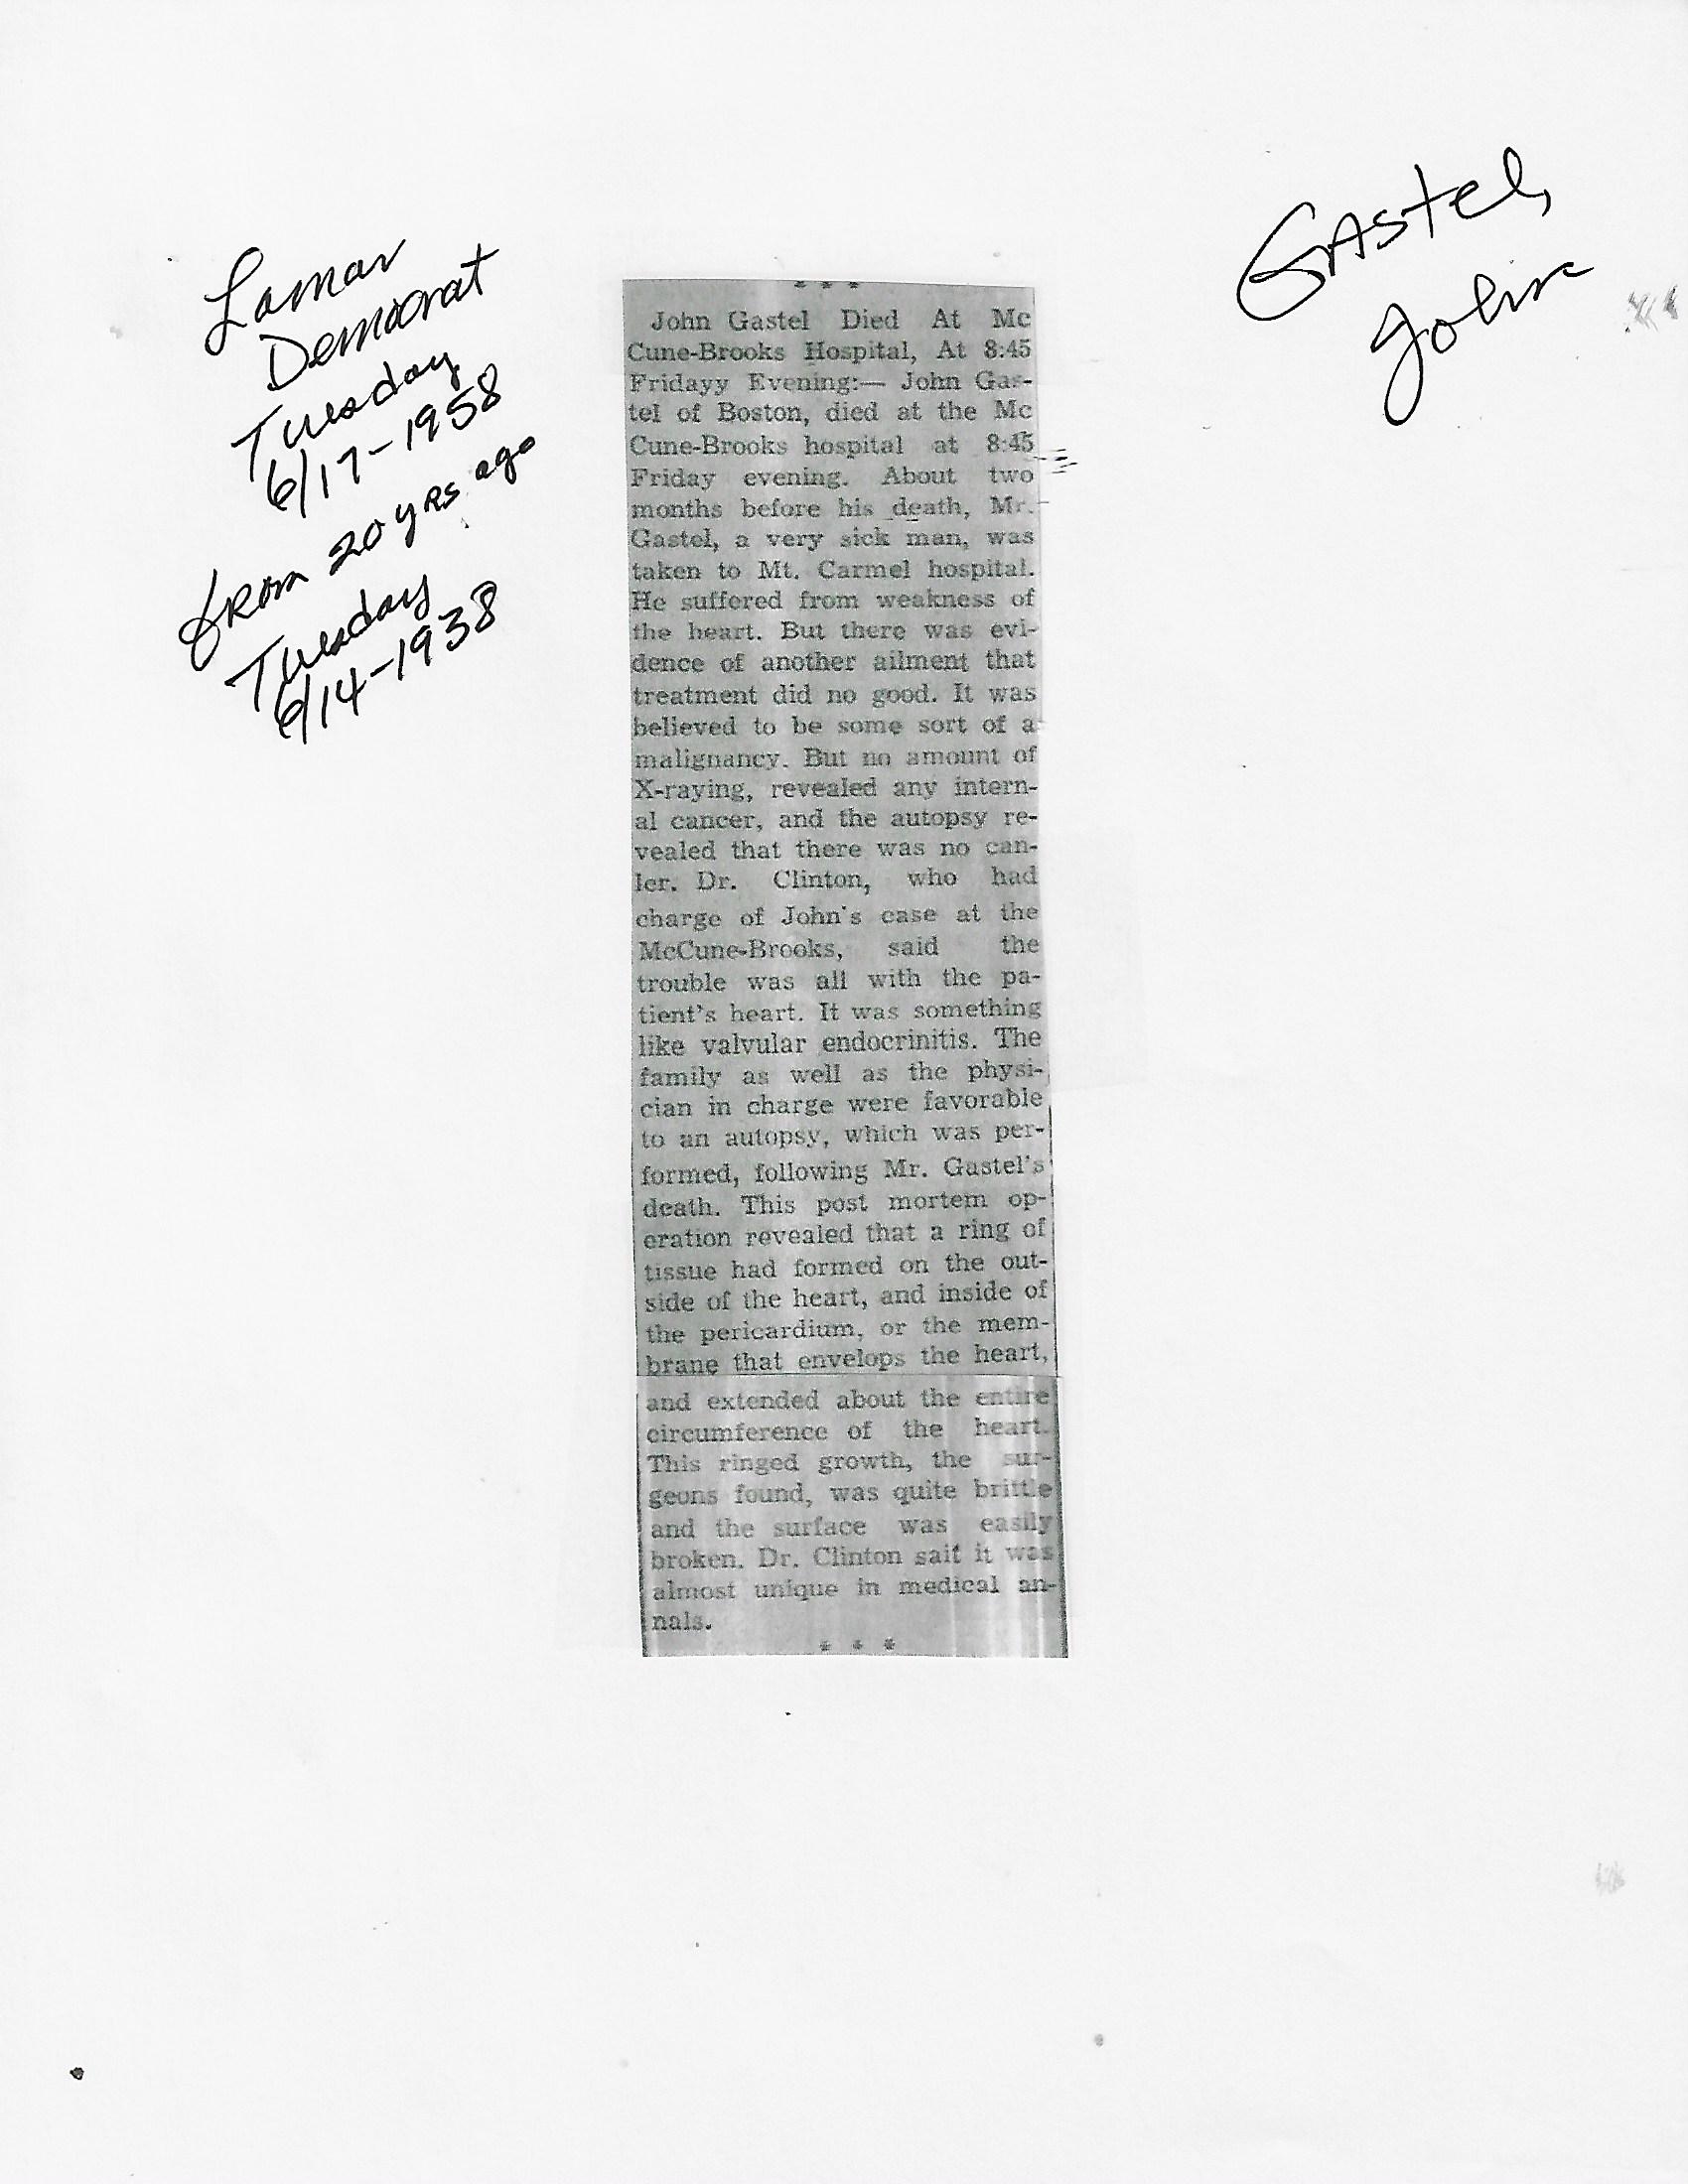 Lamar
Democrat
Tuesday
6/17-1958
from 20 yrs ago
Tuesday
6/14-1938
Gastel,
John
* * *
John Gastel Died At Mc
Cune-Brooks Hospital, At 8:45
Fridayy Evening:— John Gas-
tel of Boston, died at the Mc
Cune-Brooks hospital at 8:45
Friday evening. About two
months before his death, Mr.
Gastel, a very sick man, was
taken to Mt. Carmel hospital.
He suffered from weakness of
the heart. But there was evi-
dence of another ailment that
treatment did no good. It was
believed to be some sort of a
malignancy. But no amount of
X-raying, revealed any intern-
al cancer, and the autopsy re-
vealed that there was no can-
ler. Dr. Clinton, who had
charge of John's case at the
McCune-Brooks, said the
trouble was all with the pa-
tient's heart. It was something
like valvular endocrinitis. The
family as well as the physi-
cian in charge were favorable
to an autopsy, which was per-
formed, following Mr. Gastel's
death. This post mortem op-
eration revealed that a ring of
tissue had formed on the out-
side of the heart, and inside of
the pericardium, or the mem-
brane that envelops the heart,
and extended about the entire
circumference of the heart.
This ringed growth, the sur-
geons found, was quite brittle
and the surface was easily
broken. Dr. Clinton sait it was
almost unique in medical an-
nals.
* * *